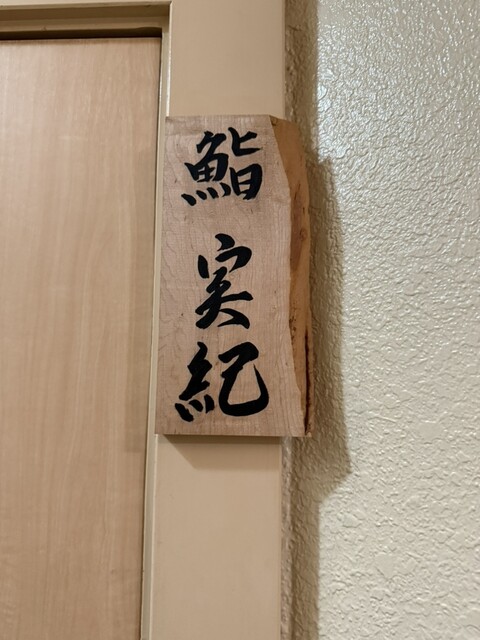 鮨 実紀